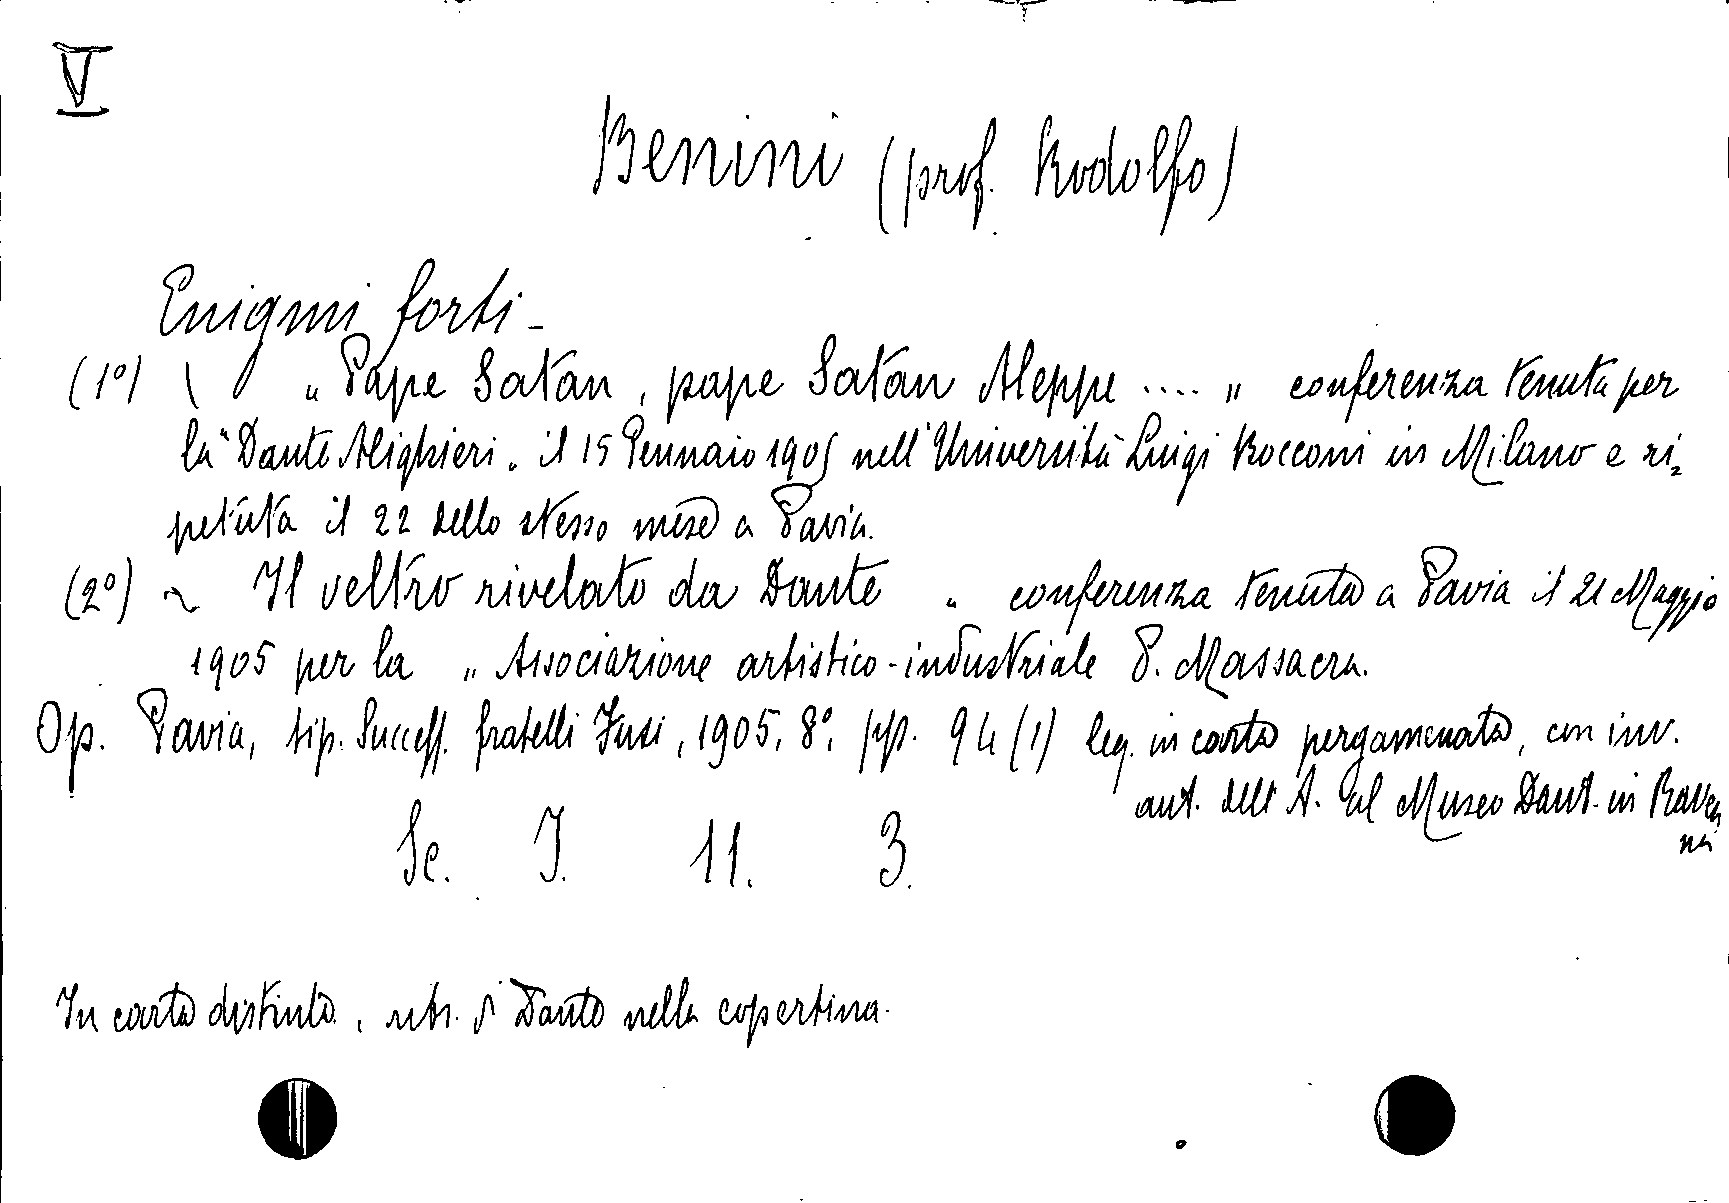 V
Benini (prof. Rodolfo)
Enigmi forti -
(1°) " Pape Satan, pape Satan Aleppe .... " conferenza tenuta per
la "Dante Alighieri" il 15 Gennaio 1905 nell'Università Luigi Bocconi in Milano e ri=
petuta il 22 dello stesso mese a Pavia.
(2°) ~ Il veltro rivelato da Dante " conferenza tenuta a Pavia il 21 Maggio
1905 per la " Associazione artistico-industriale P. Massacra.
Op. Pavia, tip. Success. fratelli Fusi, 1905, 8°, pp. 94 (1) leg. in carta pergamenata, con inv.
aut. dell'A. al Museo Dant. in Raven
na
Sc. I. 11. 3.
In carta distinta, ritr. di Dante nella copertina.